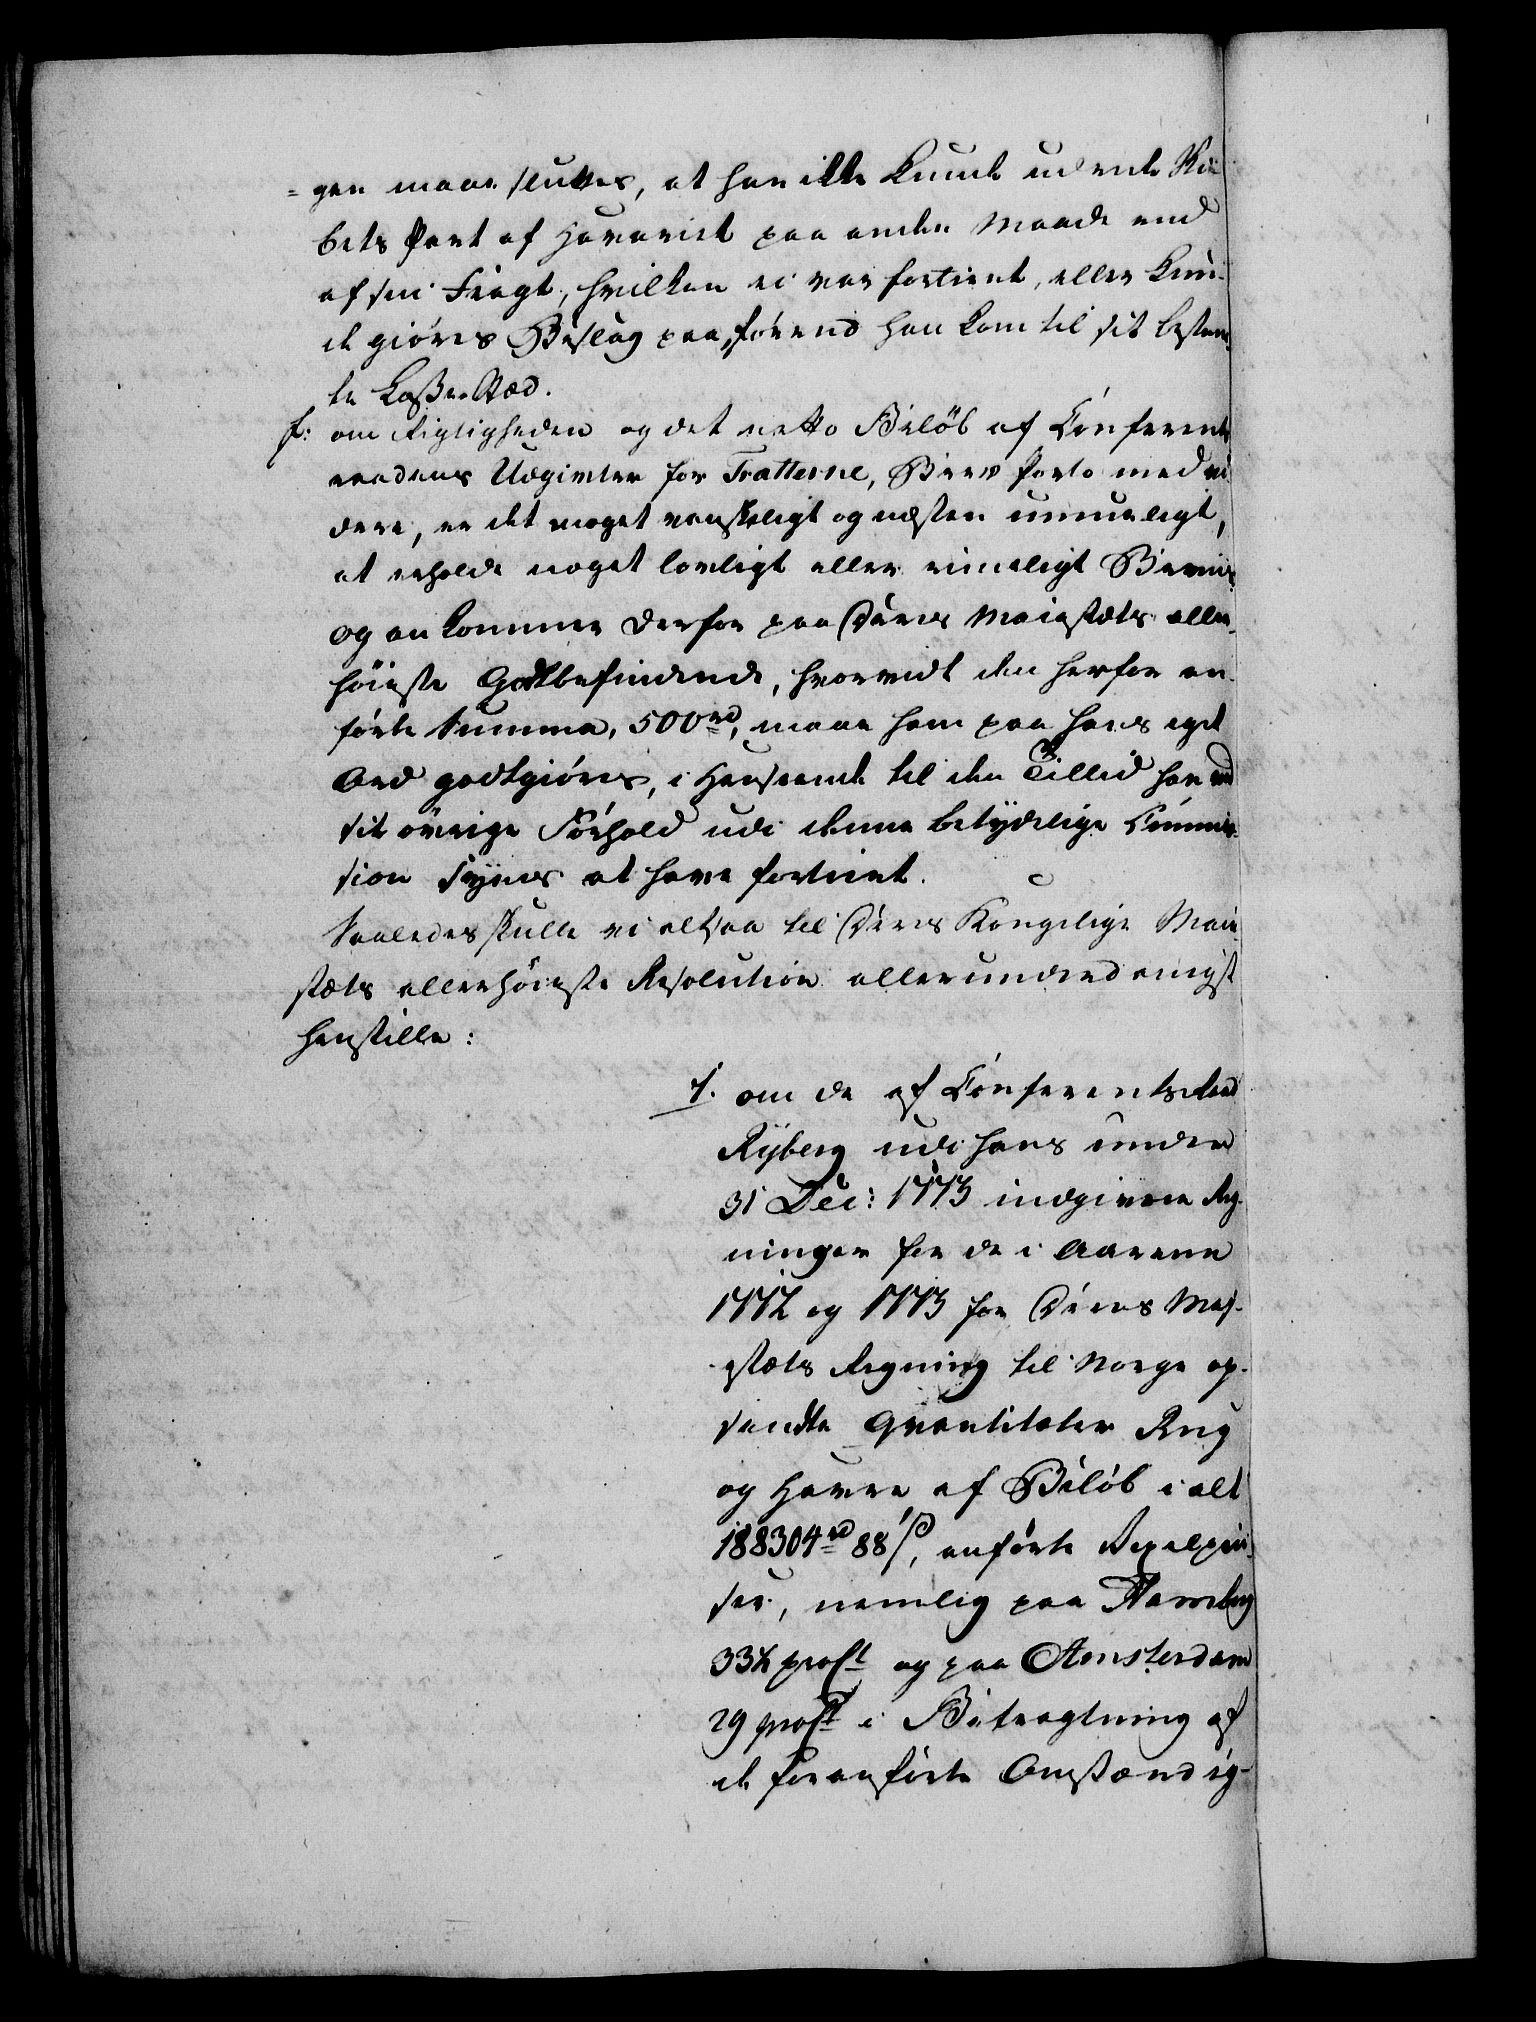 =gen maae sluttes, at han ikke kunde udrede Ski-
bets Part af Havariet paa anden Maade end
af sin Fragt, hvilken ei var fortient, eller kun-
de giøres Beslag paa, førend han kom til sit bestem-
te Losse-Stæd.
f: om Rigtigheden og det netto Beløb af Conferents
raadens Udgivter for Tratterne, Brev Porto med vi-
dere, er det meget vanskeligt og næsten umueligt,
at erholde noget lovligt eller rimeligt Beviis
og ankommer derfor paa Deres Maiestæts aller-
høieste Godtbefindende, hvorvidt den herfor an-
førte Summa, 500 rd, maae ham paa hans eget
Ord godtgiøres, i Henseende til den Tillid han ved
sit øvrige Forhold udi denne betydelige Commis-
sion synes at have fortient.
Saaledes skulle vi altsaa til Deres Kongelige Maie-
stæts allerhøieste Resolution allerunderdanigst
henstille:
1. om de af Conferentsraad
Ryberg udi hans under
31 Dec: 1773 indgivne Reg-
ninger for de i Aarene
1772 og 1773 for Deres Maj-
estæts Regning til Norge op-
sendte Qvantiteter Rug
og Havre af Beløb i alt
188304 rd 88 s, anførte Vexelpri-
ser, nemlig paa Hamborg
33½ proCt og paa Amsterdam
29 proCt i Betragtning af
de foranførte Omstændig-